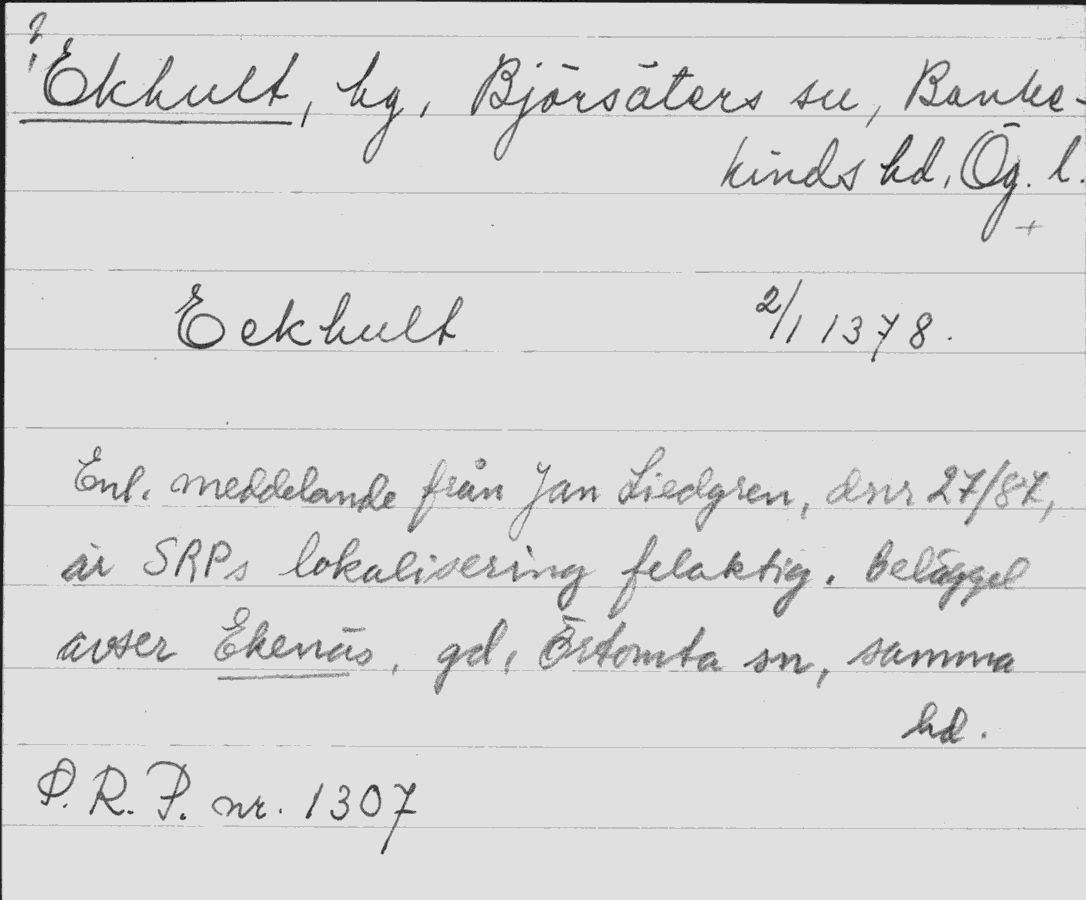 ?
Ekhult, hg, Björsäters sn, Banke-
kinds hd, Ög. l.
+
Eekhult 2/1 1378.
Enl. meddelande från Jan Liedgren, dnr 27/87,
är SRPs lokalisering felaktig. Belägget
avser Ekenäs, gd, Örtomta sn, samma
hd.
P.R.P. nr. 1307